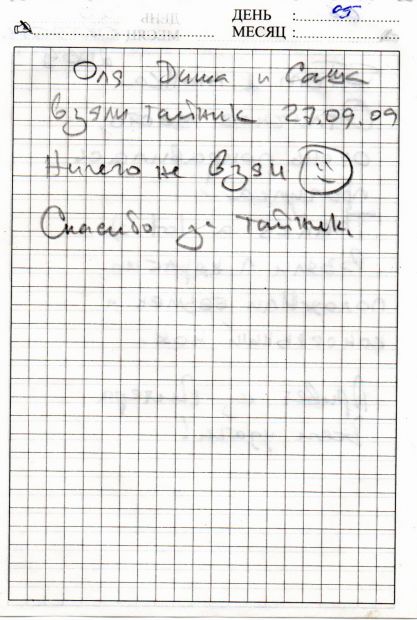 ДЕНЬ : 05
МЕСЯЦ :
Оля Даша и Саша
взяли тайник 27.09.09
Ничего не взяли
Спасибо за тайник.